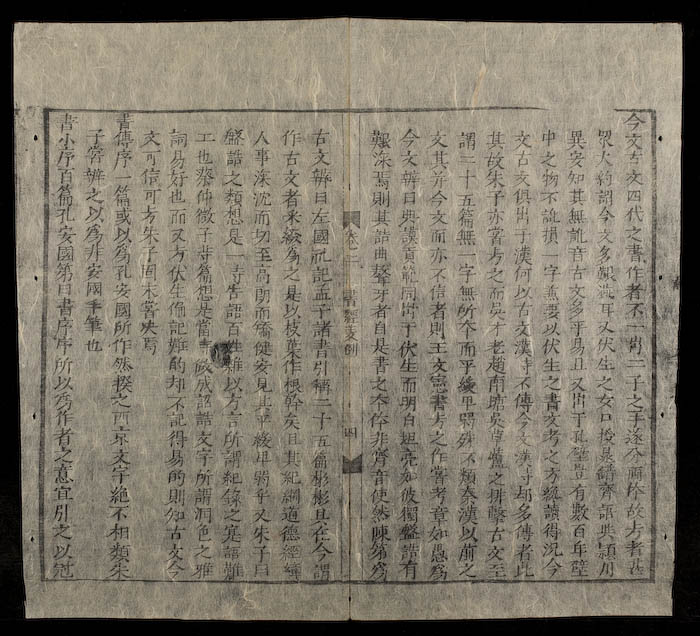 今文古文四代之書作者不一出二子之手遂分兩体故考者甚
眾大約謂今文多艱澁耳又伏生之女口授晁錯齊語與潁川
異安知其無訛音古文多平易且又出于孔壁豈有數百年壁
中之物不訛損一字兼要以伏生之書文考之方能讀得況今
文古文俱出于漢何以古文漢時不傳今文漢時却多傳者此
其故朱子亦嘗考之而吳才老趙南塘吳草廬之排擊古文至
謂二十五篇無一字無所本而平緩卑弱殊不類秦漢以前之
文其并今文而亦不信者則王文憲書考之作嘗考章如愚為
今文辨曰典謨貢範同出于伏生而明白坦亮如彼獨盤誥有
艱深焉則其詰曲聱牙者自是書之本体非齊音使然陳第為
卷二 書經 四
古文辨曰左國礼記孟子諸書引稱二十五篇彬彬具在今謂
作古文者采綴為之是以枝葉作根幹矣且其紀綱道德經緯
人事深沈而切至高朗而矯健安見其平緩卑弱乎又朱子曰
盤誥之類想是一時告語百姓雜以方言所謂紀錄之寔語難
工也蔡仲微子等篇想是當時做成詔誥文字所謂潤色之雅
詞易好也而又方伏生偏記難的却不記得易的則知古文今
文可信可方朱子固未嘗決焉
書傳序一篇或以為孔安國所作然揆之西京文字絕不相類朱
子嘗辨之以為非安國手筆也
書小序百篇孔安國第曰書序序所以為作者之意宜引之以冠